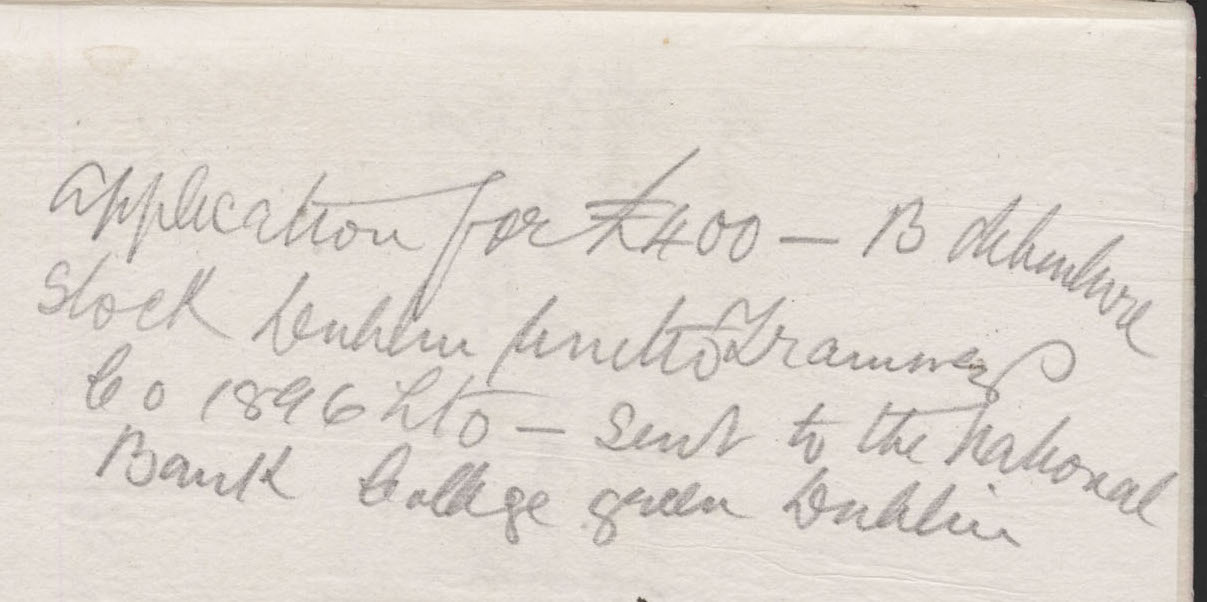 application for £400 — B debenture
Stock Dublin United Tramways
Co 1896 Ltd — sent to the National
Bank College green Dublin